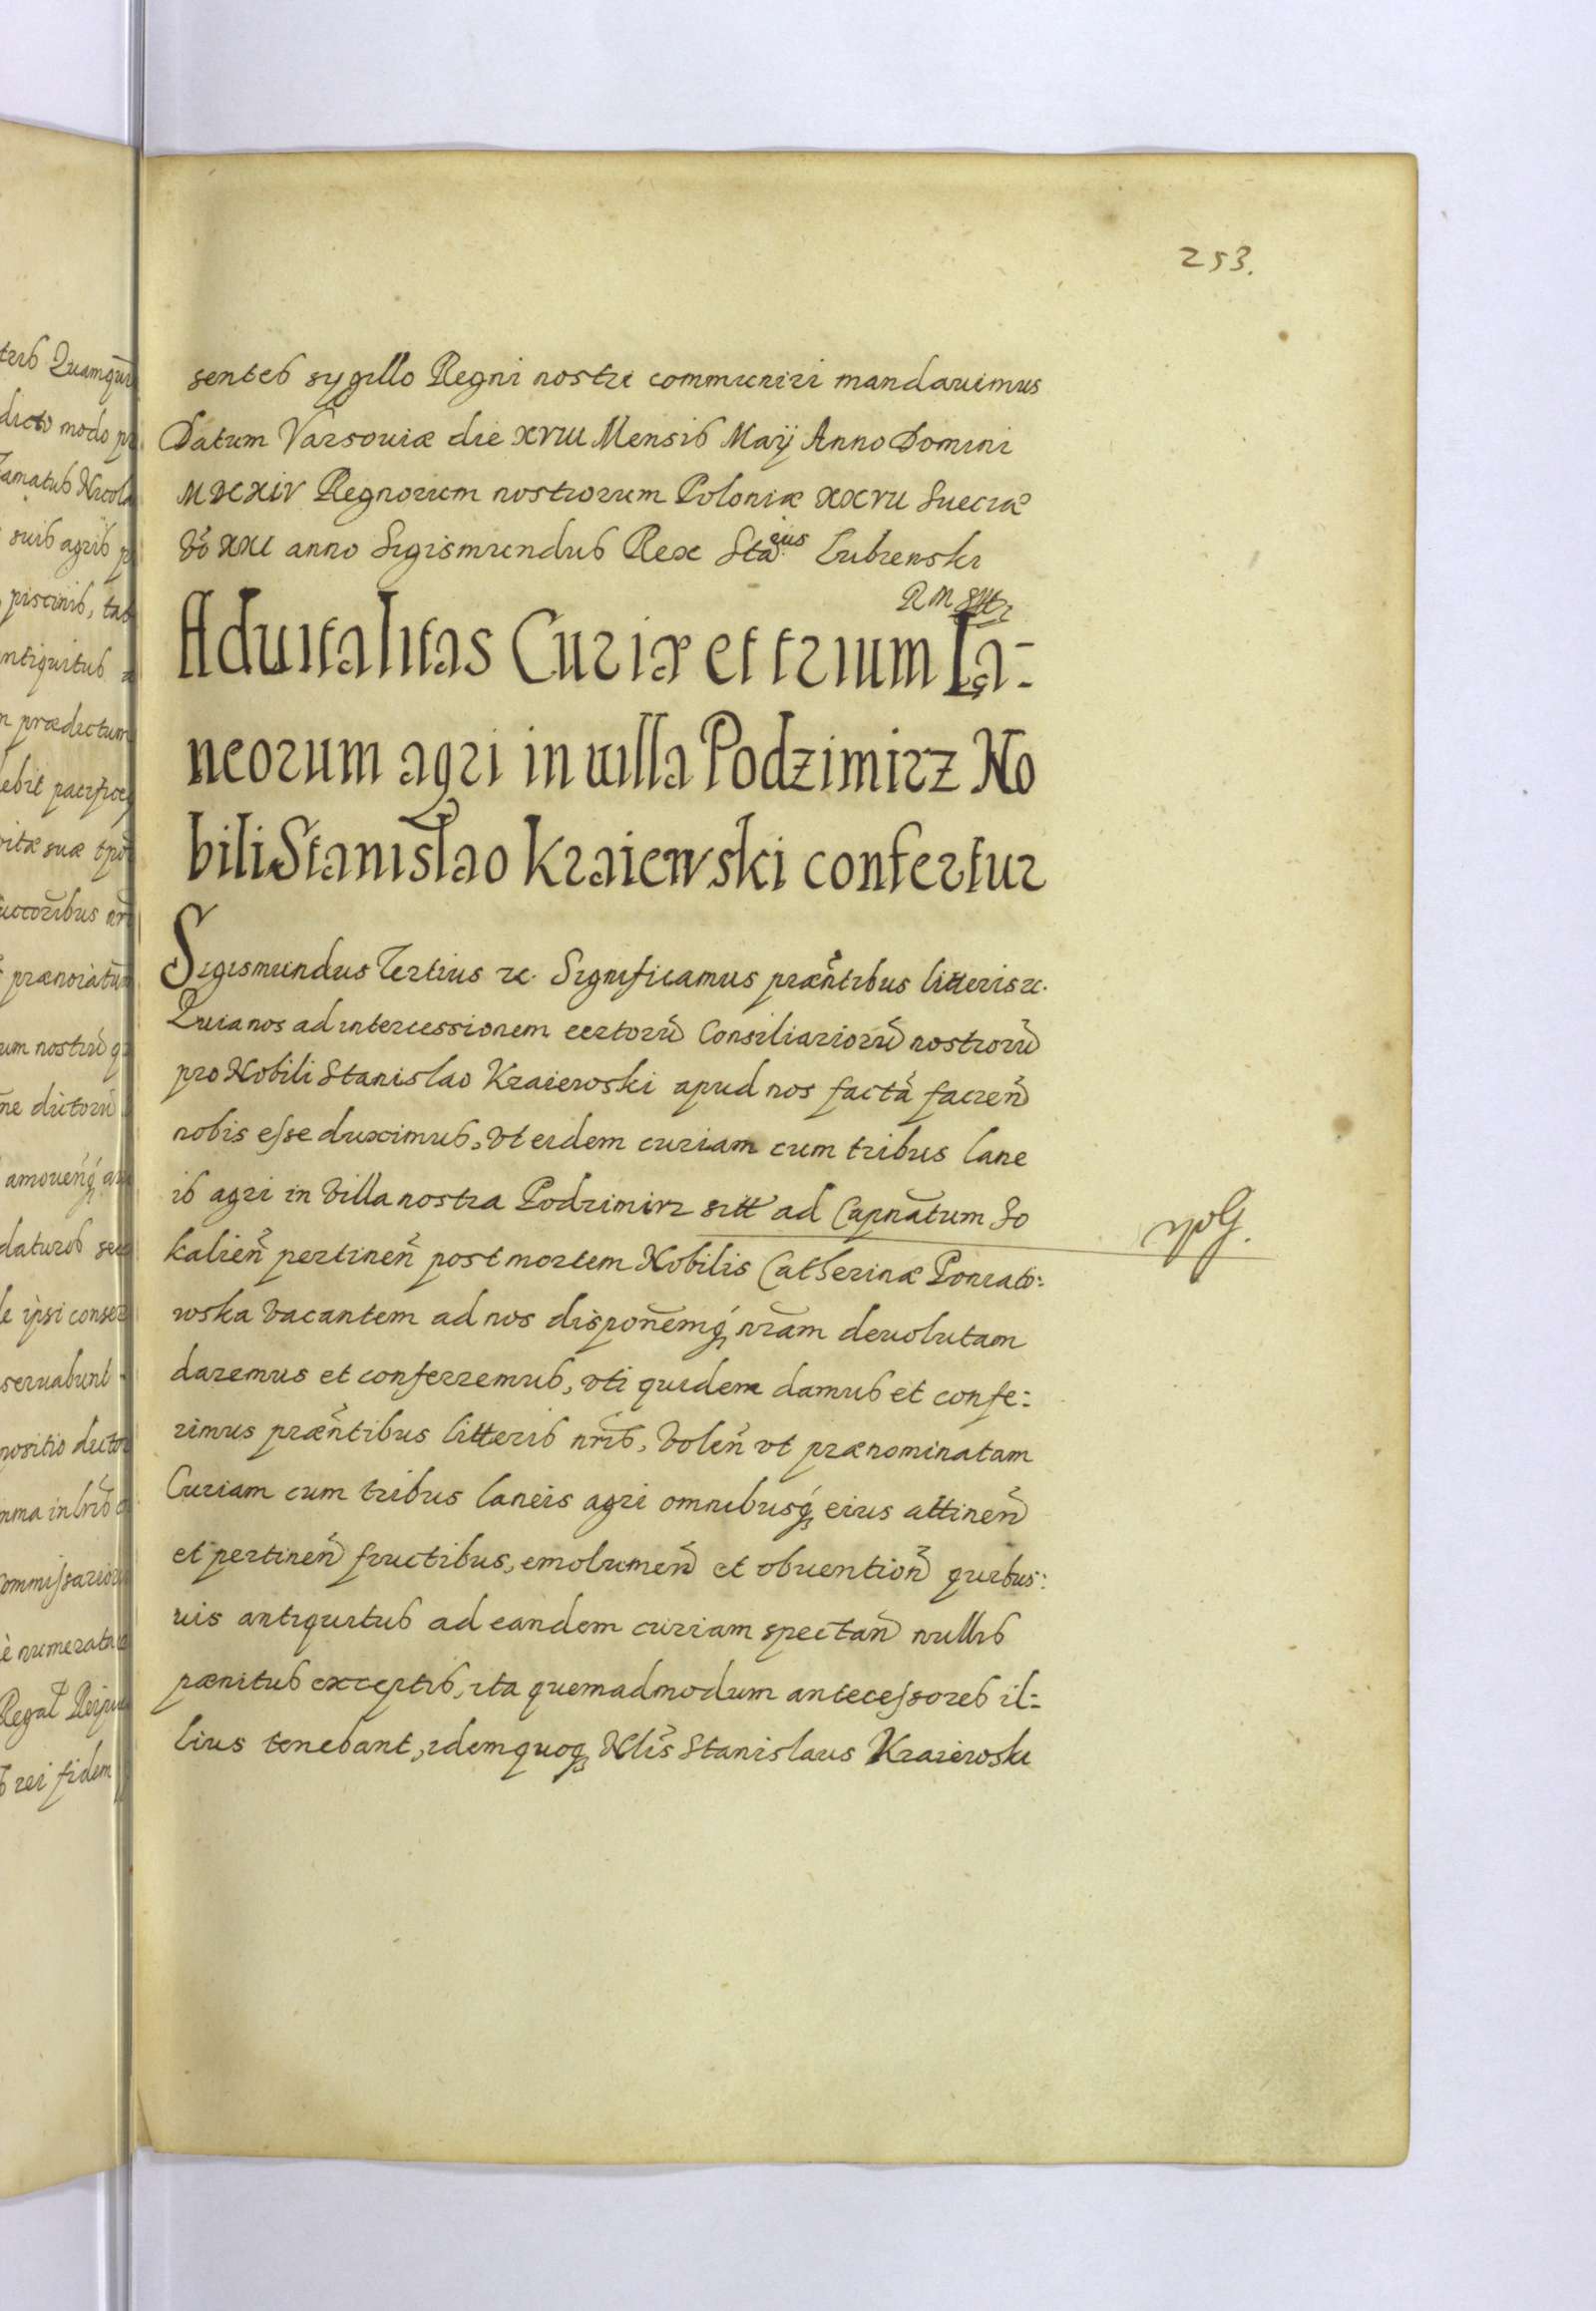 253.
sentes sygillo Regni nostri communiri mandauimus
Datum Varsouiæ die XVIII Mensis Maÿ Anno Domini
MDCXIV Regnorum nostrorum Poloniæ XXVII Sueciæ
vo XXI anno Sigismundus Rex Staus Lubienski
Aduitalitas Curiæ et trium La=
neorum agri in uilla Podzimirz No
bili Stanislao Kraiewski confertur
Sigismundus Tertius etc. Significamus præntibus litteris etc.
Quia nos ad intercessionem certorū Consiliariorū nostrorū
pro Nobili Stanislao Kraiewski apud nos factā facien
nobis esse duximus, vt eidem curiam cum tribus lane
is agri in Villa nostra Podzimirz sitt ad Capnatum So
kalien pertinen post mortem Nobilis Catherinæ Poniato=
wska vacantem ad nos disponemq nram deuolutam
daremus et conferremus, vti quidem damus et confe=
rimus præntibus litteris nris, Volen vt prænominatam
Curiam cum tribus laneis agri omnibusq eius attinen
et pertinen fructibus, emolumen et obuention quibus=
uis antiquitus ad eandem curiam spectan nullis
pænitus exceptis, ita quemadmodum antecessores il=
lius tenebant, idemquoq Nlis Stanislaus Kraiewski
tris Quamqui
dicto modo
suis agris
piscinis,
antiquitus
prædictum
vitæ suæ
prænoiatum
um nostrū
dictorū
amouenq
daturos
ipsi conser
seruabunt
rei fidem